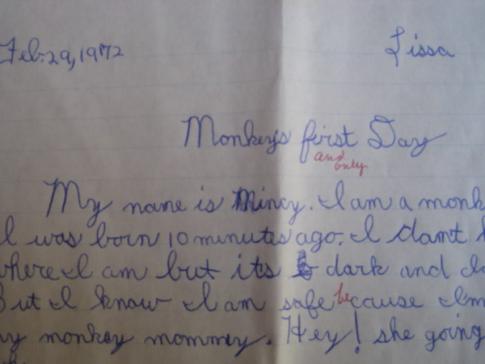 Feb. 29, 1972
Lissa
Monkey's first Day
and only
My name is Mincy. I am a monk
I was born 10 minutes ago. I
where I am but its dark and
But I know I am safe because I'm
my monkey mommy. Hey! she going